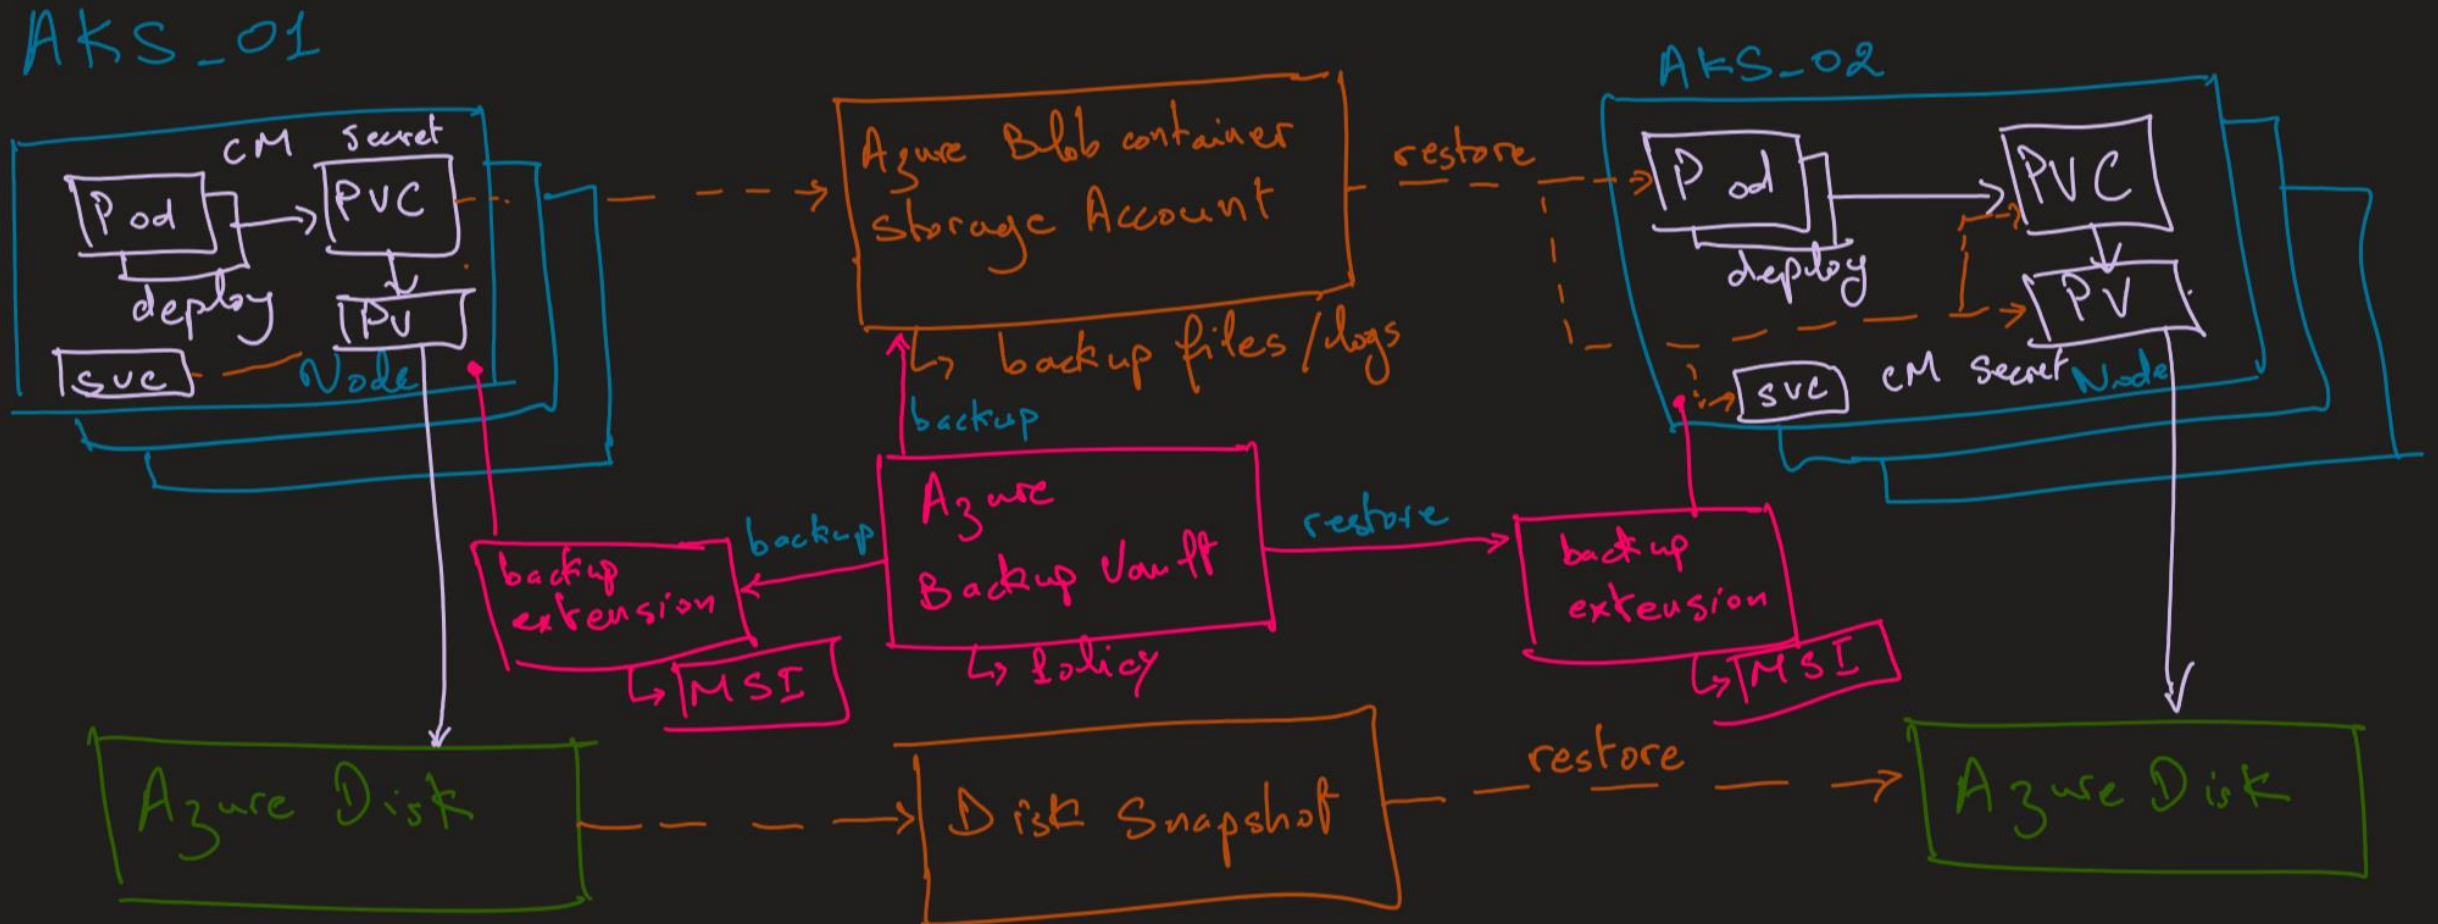 AKS_01
CM secret
Pod
PVC
deploy
PV
svc
Node
Azure Blob container
storage Account
↳ backup files/logs
restore
AKS_02
Pod
PVC
deploy
PV
svc
CM secret
Node
backup
Azure
Backup Vault
↳ Policy
backup
backup
extension
↳ MSI
restore
backup
extension
↳ MSI
Azure Disk
Disk Snapshot
restore
Azure Disk